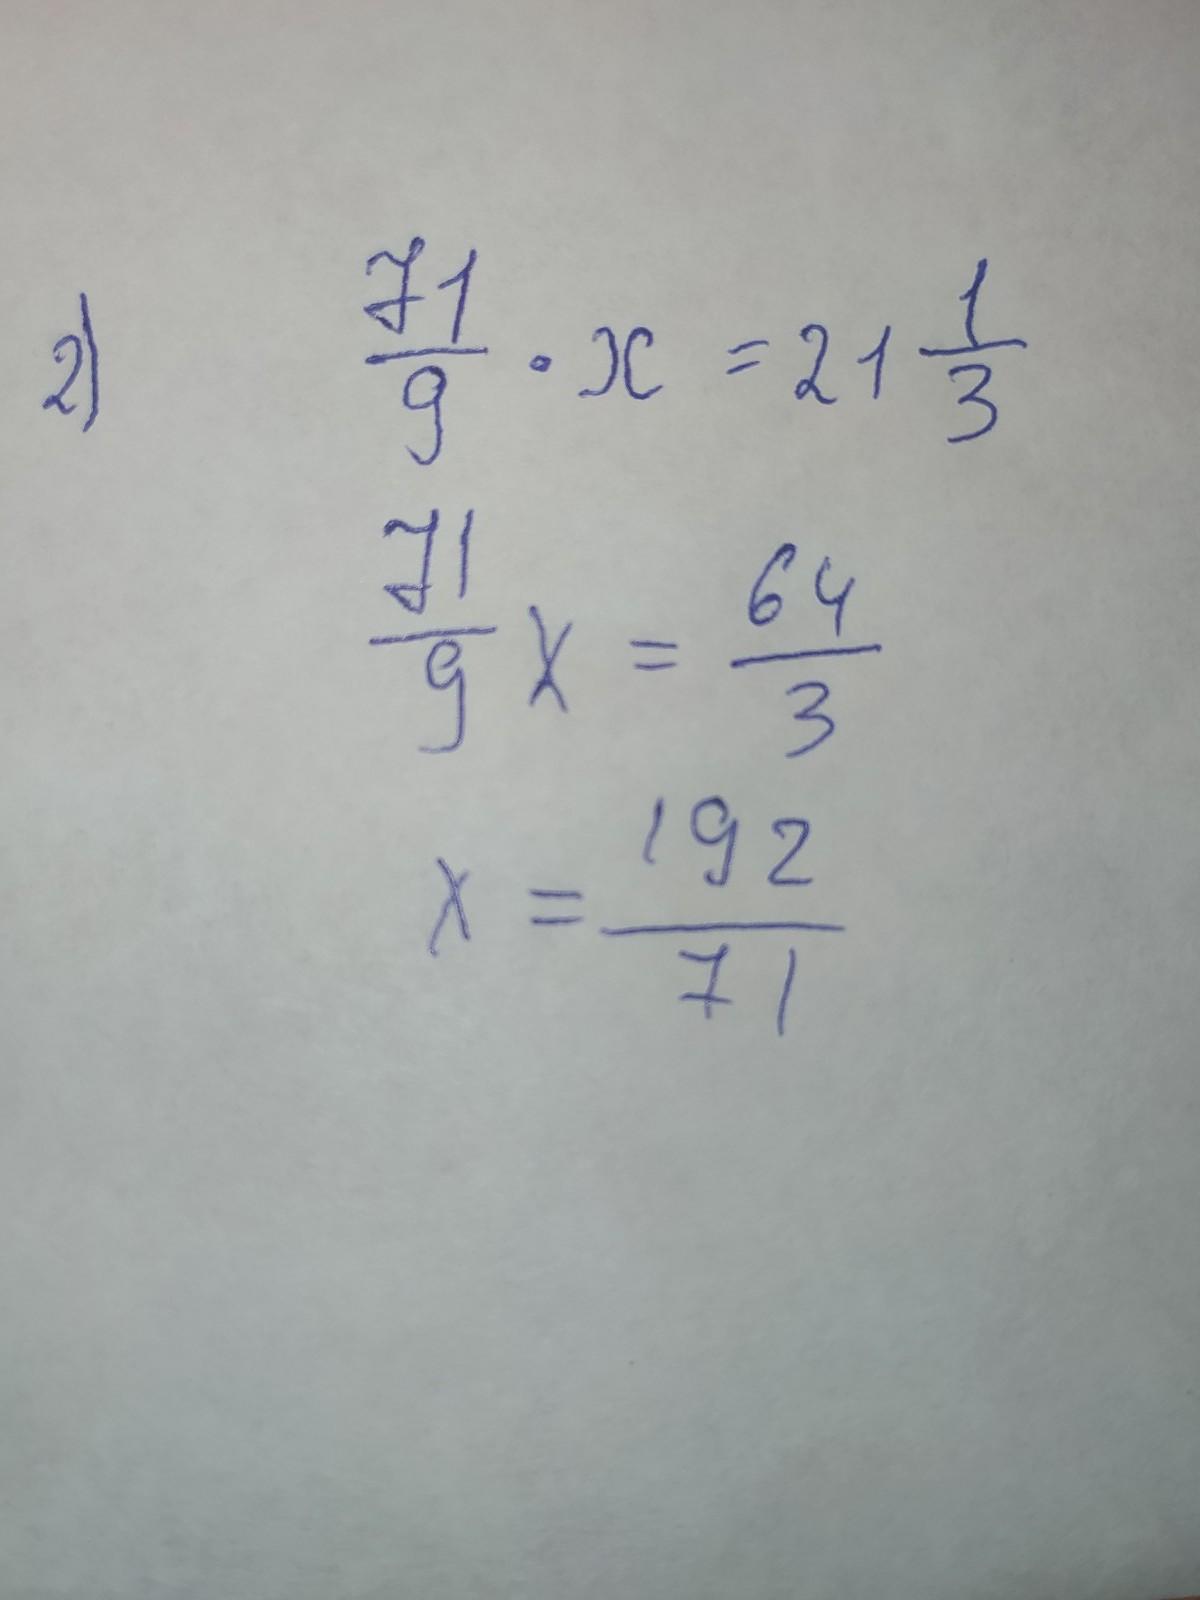 2) 71/9 · x = 21 1/3
71/9 x = 64/3
x = 192/71